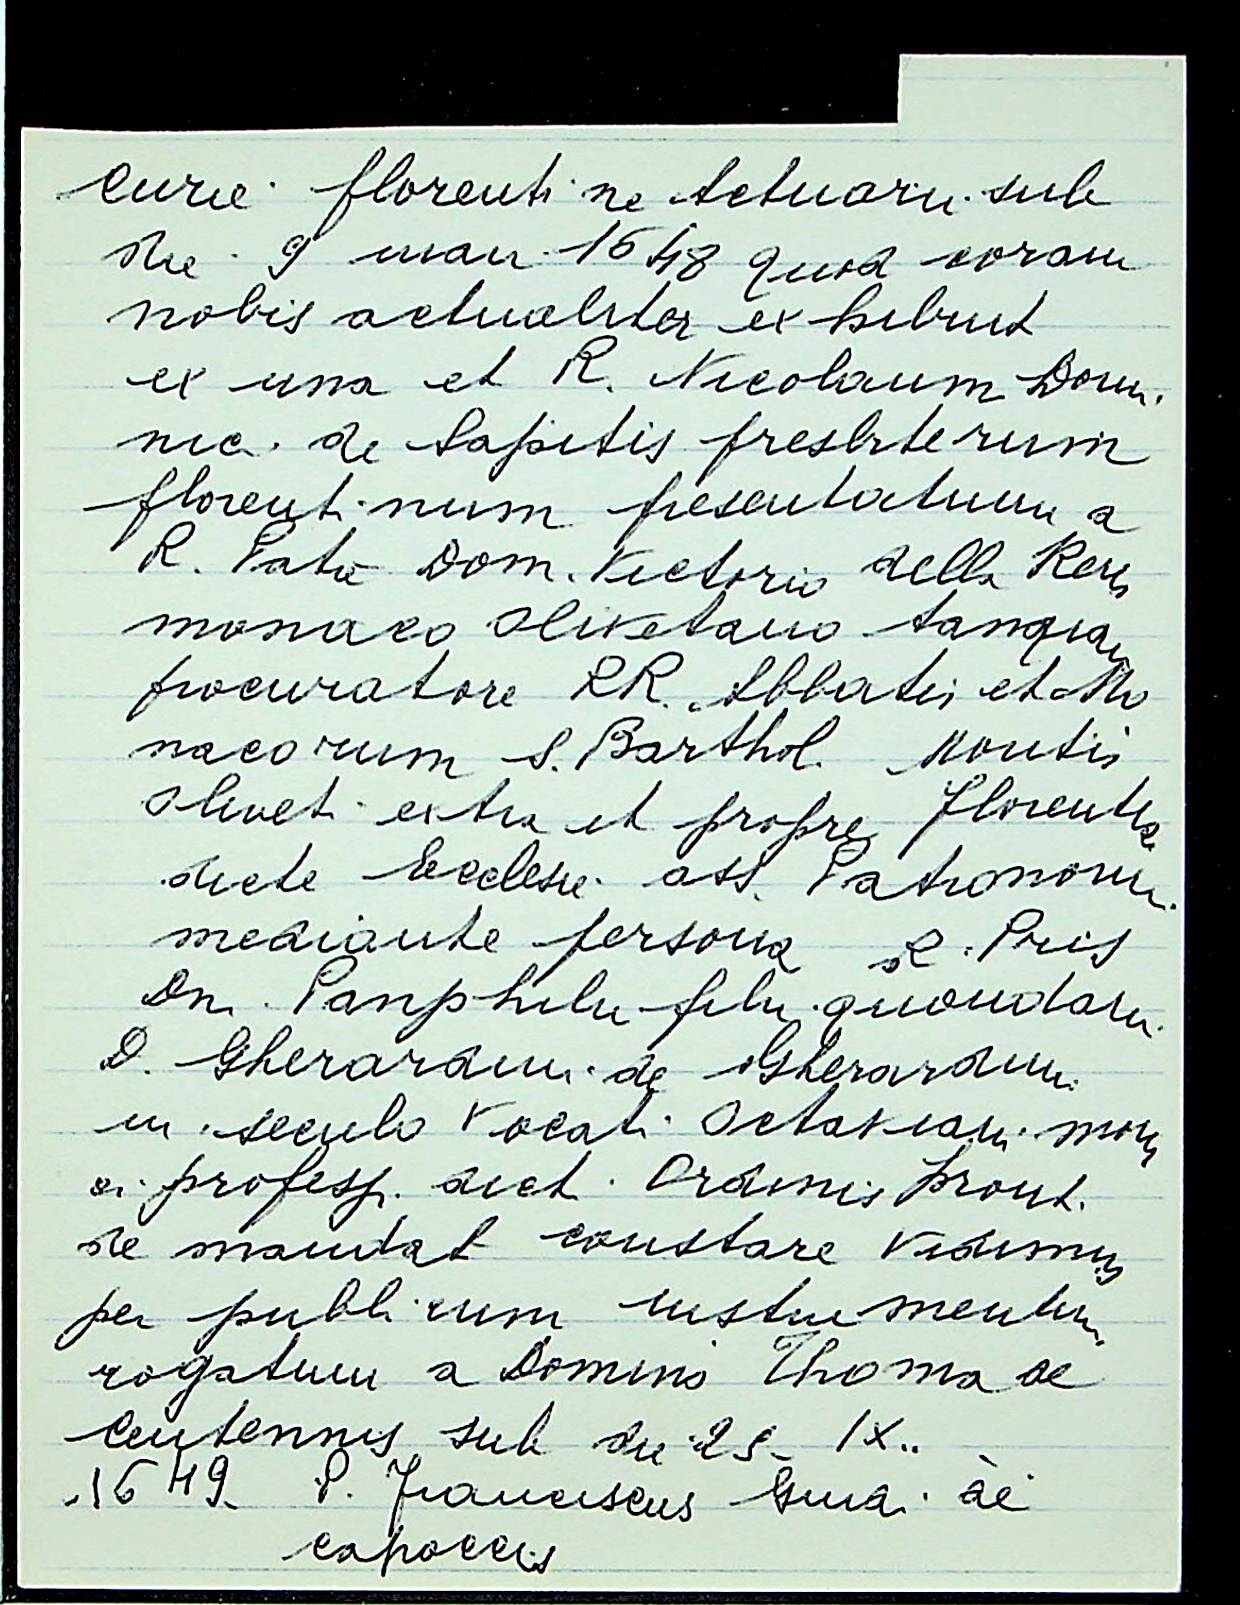 Curie florentine Actuarii sub
die 9 maii 1648 quod coram
nobis actualiter exhibuit
ex una et R. Nicolaum Domi
nic. de Sapitis presbiterum
florentinum presentatum a
R. Patre Dom. Victorio della Rena
monaco Olivetano tanquam
procuratore RR. Abbatis et Mo
nacorum S. Barthol. Montis
Oliveti extra et prope Florentia
dicte Ecclesie ass. Patronorum
mediante persona R. Pris
Dn. Panphilii filii quondam
D. Gherardini de Gherardini
in seculo vocati Octaviani mon
ci profess. dicti Ordinis prout
de mandat constare vidimus
per publicum instrumentum
rogatum a Domino Thoma de
Centennis sub die 25 IX..
1649 P. Franciscus Guid. de
capoccis